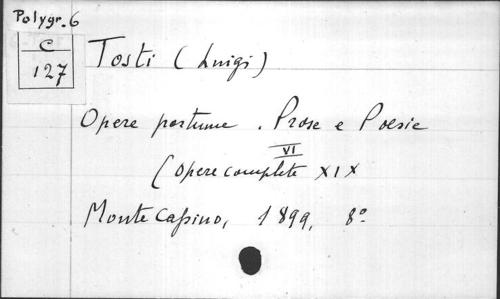 Polygr. 6
C
127
Tosti (Luigi)
Opere postume. Prose e Poesie
VI
(Opere complete XIX
Montecassino, 1899, 8°